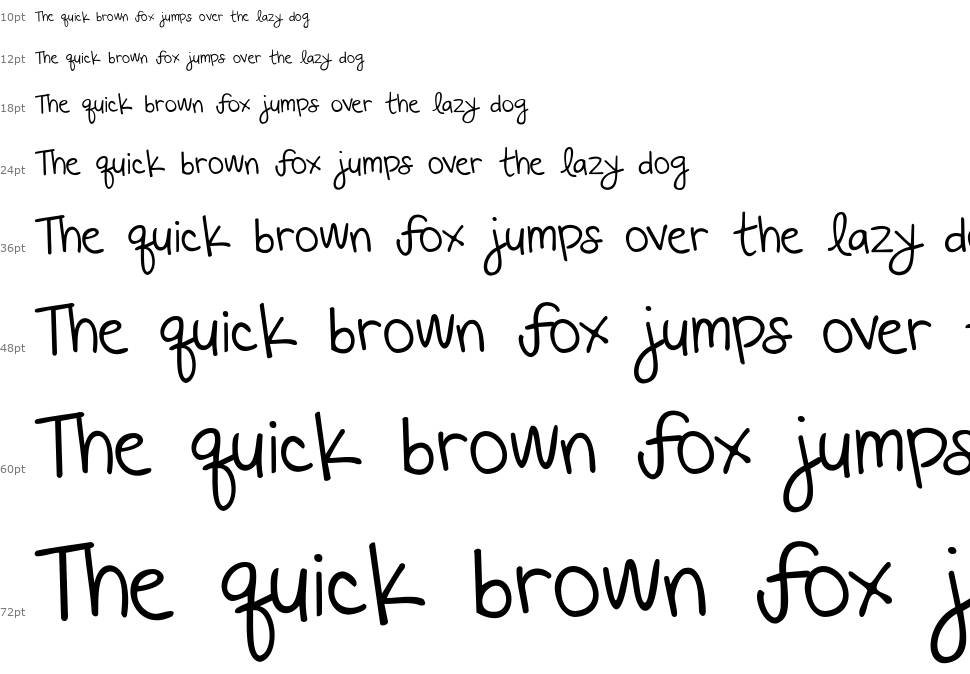 10pt The quick brown fox jumps over the lazy dog
12pt The quick brown fox jumps over the lazy dog
18pt The quick brown fox jumps over the lazy dog
24pt The quick brown fox jumps over the lazy dog
36pt The quick brown fox jumps over the lazy d
48pt The quick brown fox jumps over
60pt The quick brown fox jumps
72pt The quick brown fox j